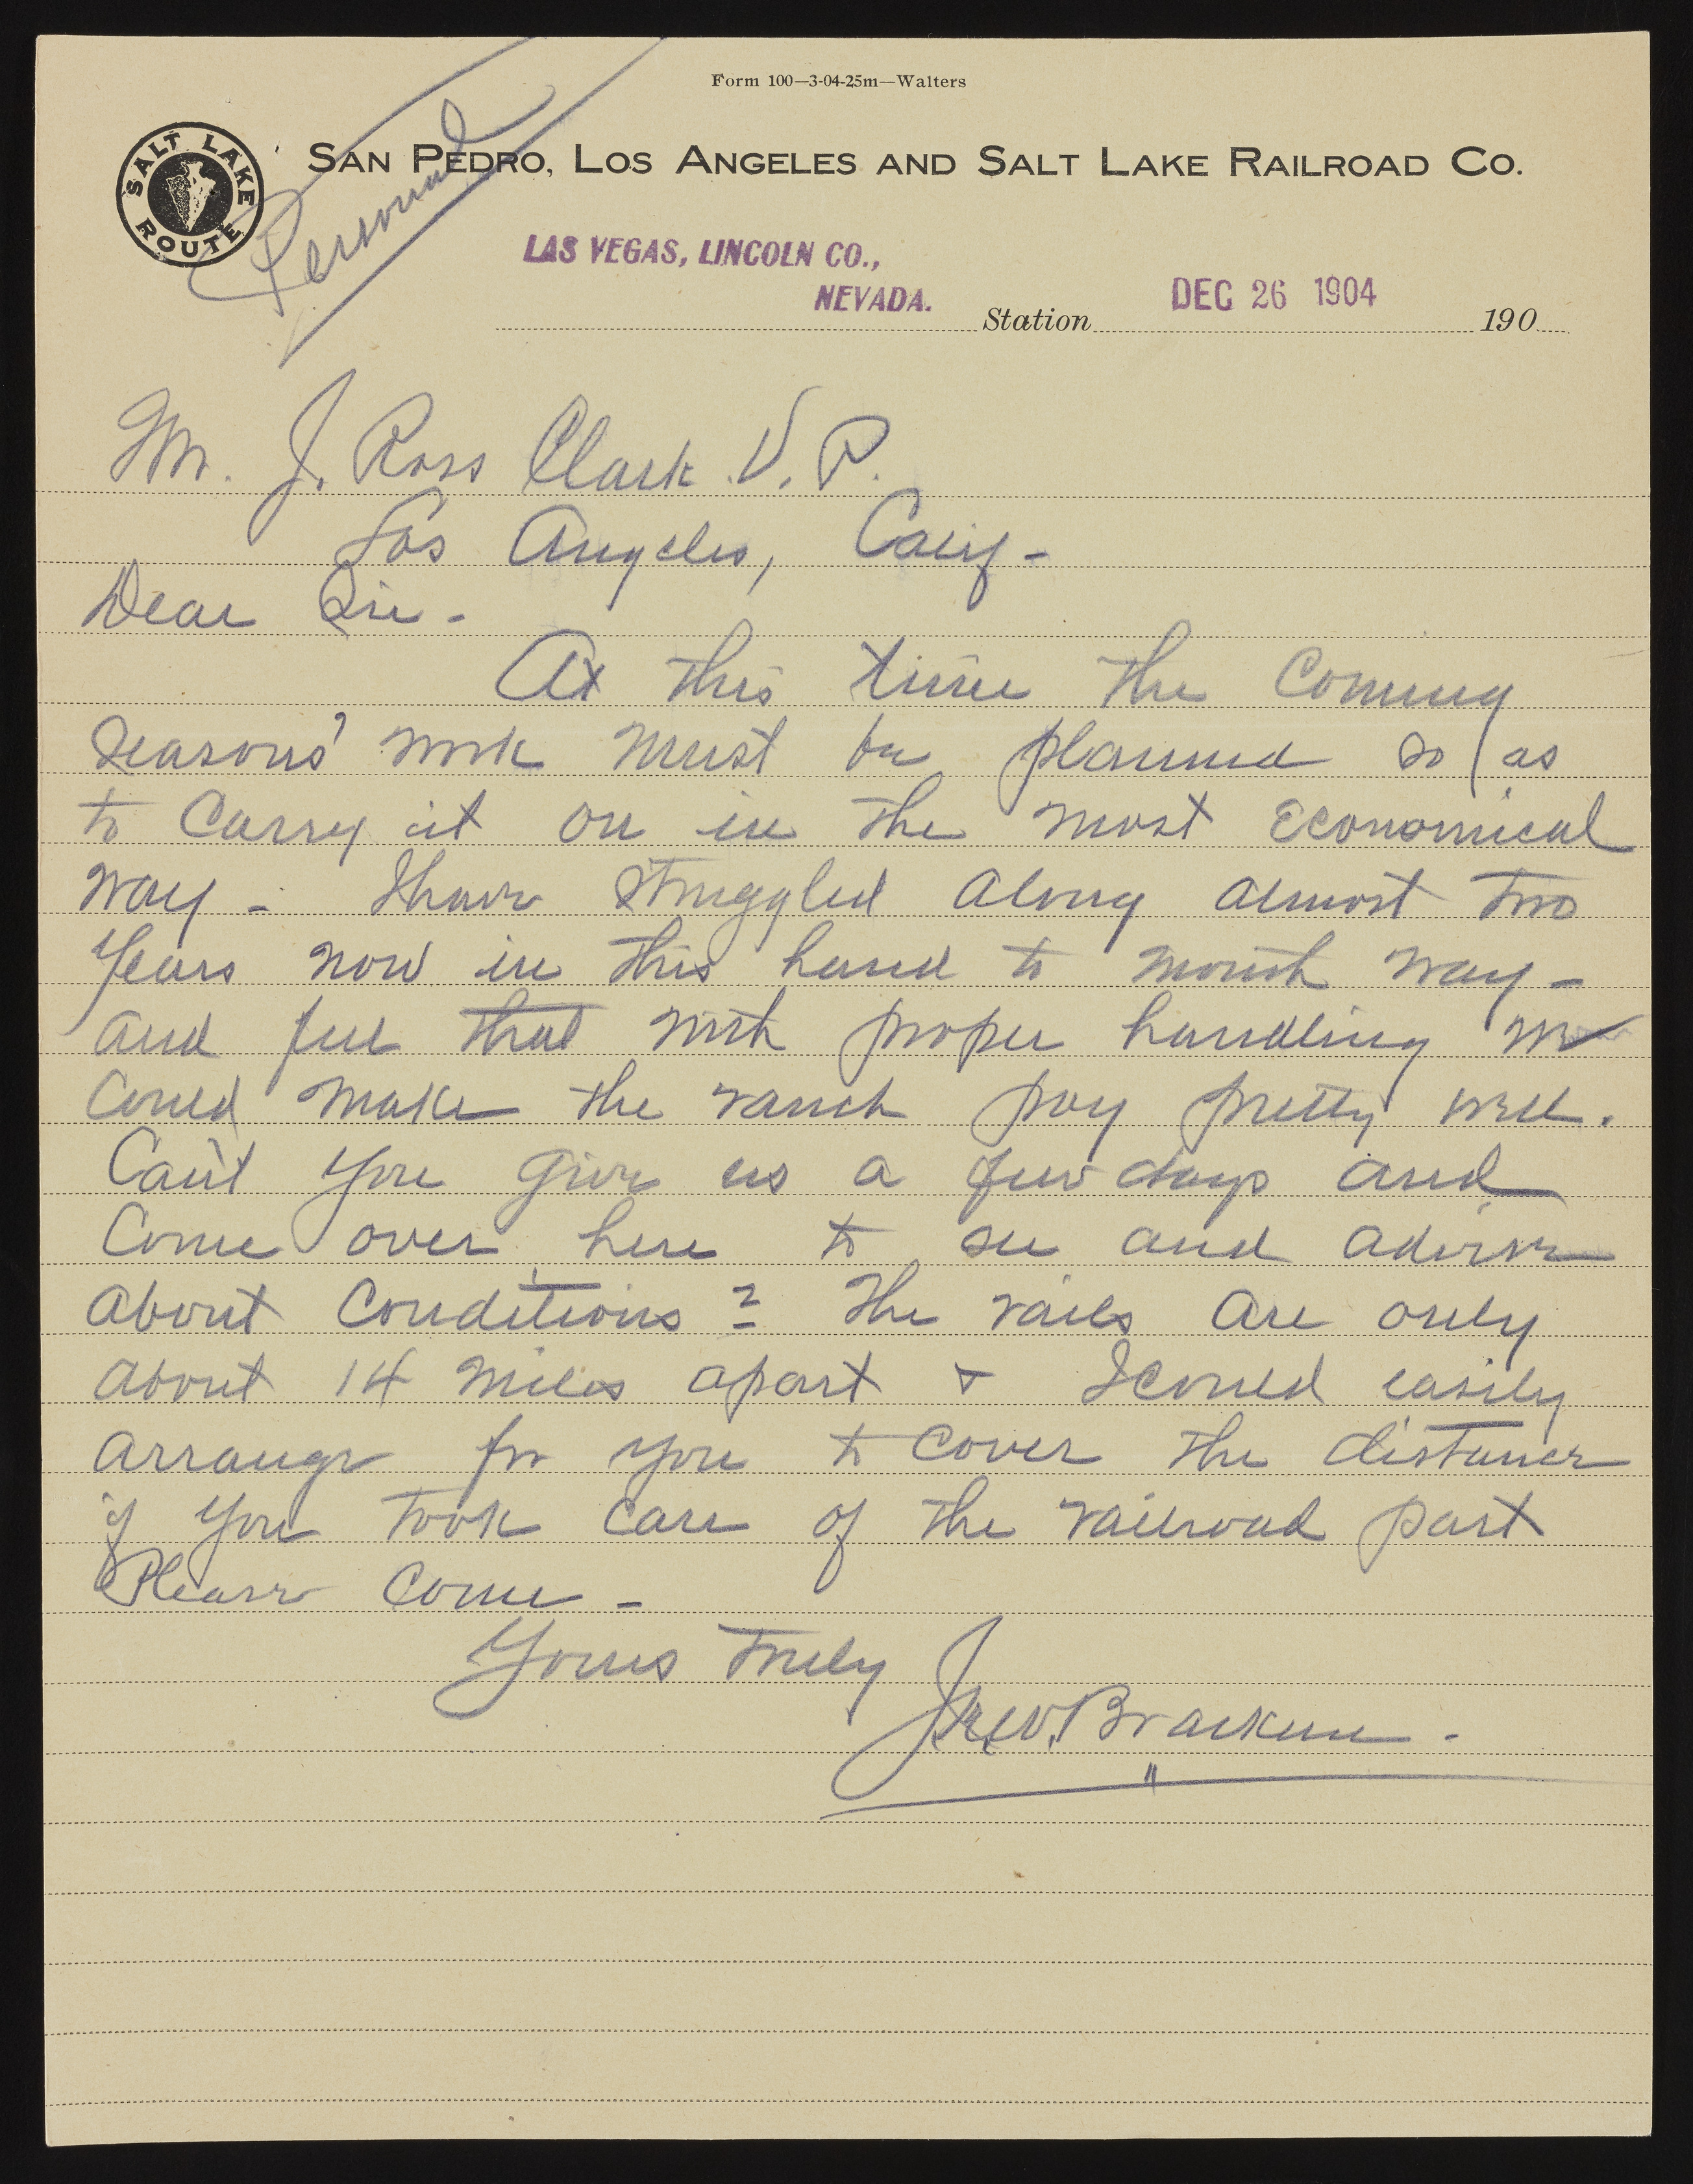 Form 100—3-04-25m—Walters
SALT LAKE ROUTE
Personal
SAN PEDRO, LOS ANGELES AND SALT LAKE RAILROAD CO.
LAS VEGAS, LINCOLN CO.,
NEVADA. Station DEC 26 1904 190
Mr. J. Ross Clark V. P.
Los Angeles, Calif-
Dear Sir-
At this time the coming
seasons' work must be planned so as
to carry it on in the most economical
way - I have struggled along almost two
years now in this hand to mouth way -
and feel that with proper handling we
could make the ranch pay pretty well.
Can't you give us a few days and
come over here to see and advise
about conditions? The rails are only
about 14 miles apart & I could easily
arrange for you to cover the distance
if you took care of the railroad part
Please come -
Yours truly
Jno. W. Bracken -